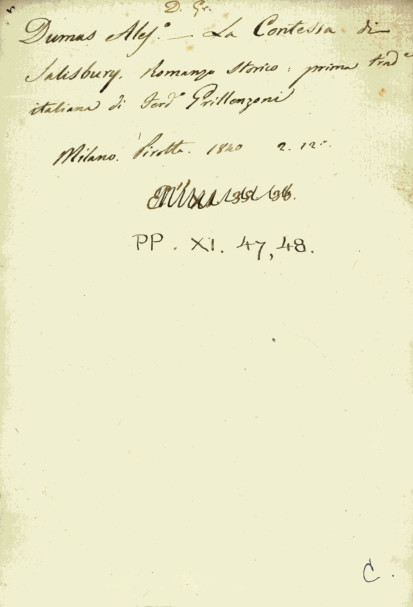 D. Gr.
Dumas Aless.º — La Contessa di
Salisbury. Romanzo storico: prima trad.e
italiana di Ferd.º Grillenzoni
Milano. Pirotta. 1840 2. 12º.
PP. XI. 47, 48.
C.